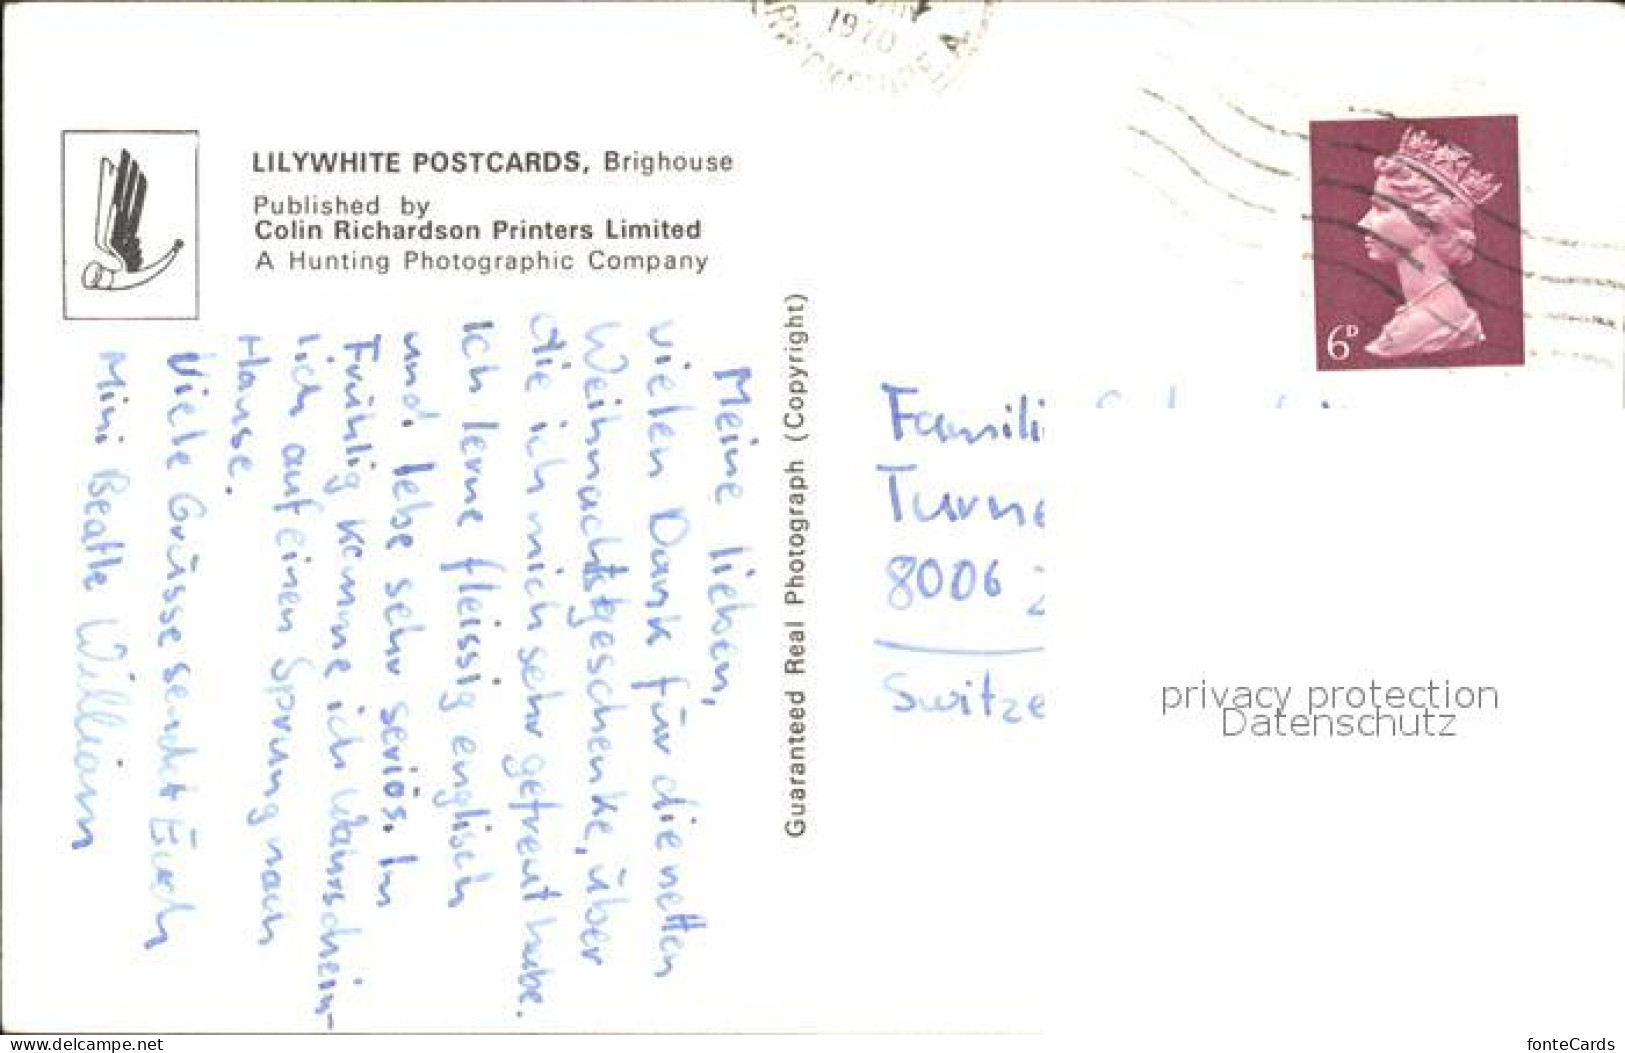 1970
LILYWHITE POSTCARDS, Brighouse
Published by
Colin Richardson Printers Limited
A Hunting Photographic Company
Meine lieben,
vielen Dank für die netten
Weihnachtsgeschenke, über
die ich mich sehr gefreut habe.
Ich lerne fleissig englisch
und lebe sehr seriös. Im
Frühlig komme ich wahrschein-
lich auf einen Sprung nach
Hause.
Viele Grüsse sendet Euch
Mini Beatle William
Guaranteed Real Photograph (Copyright)
6D
Famili
Turne
8006
Switze
privacy protection
Datenschutz
www.delcampe.net
fonteCards